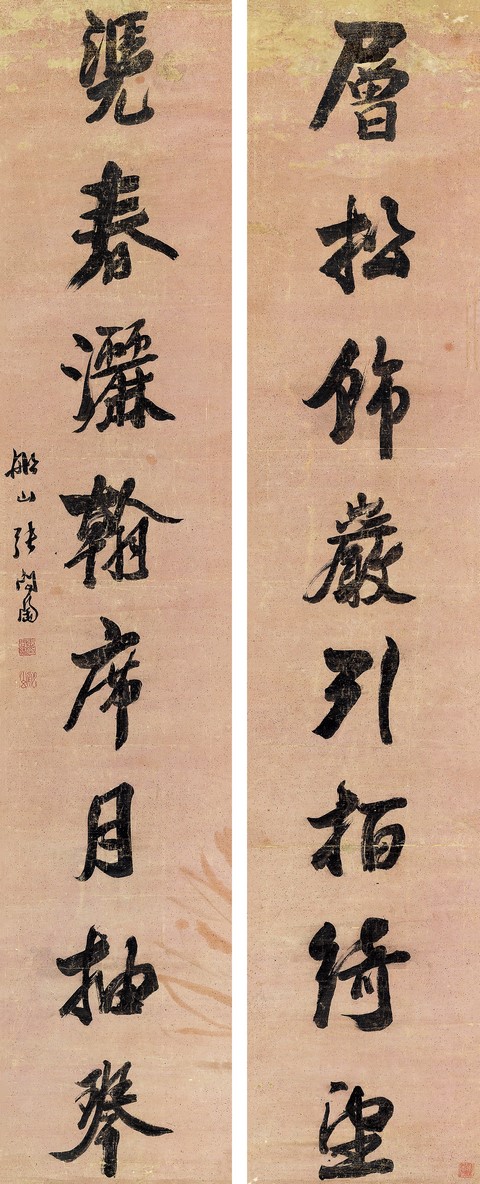 層松飾巖列栢綺望
凴春灑翰席月抽琴
船山張問陶